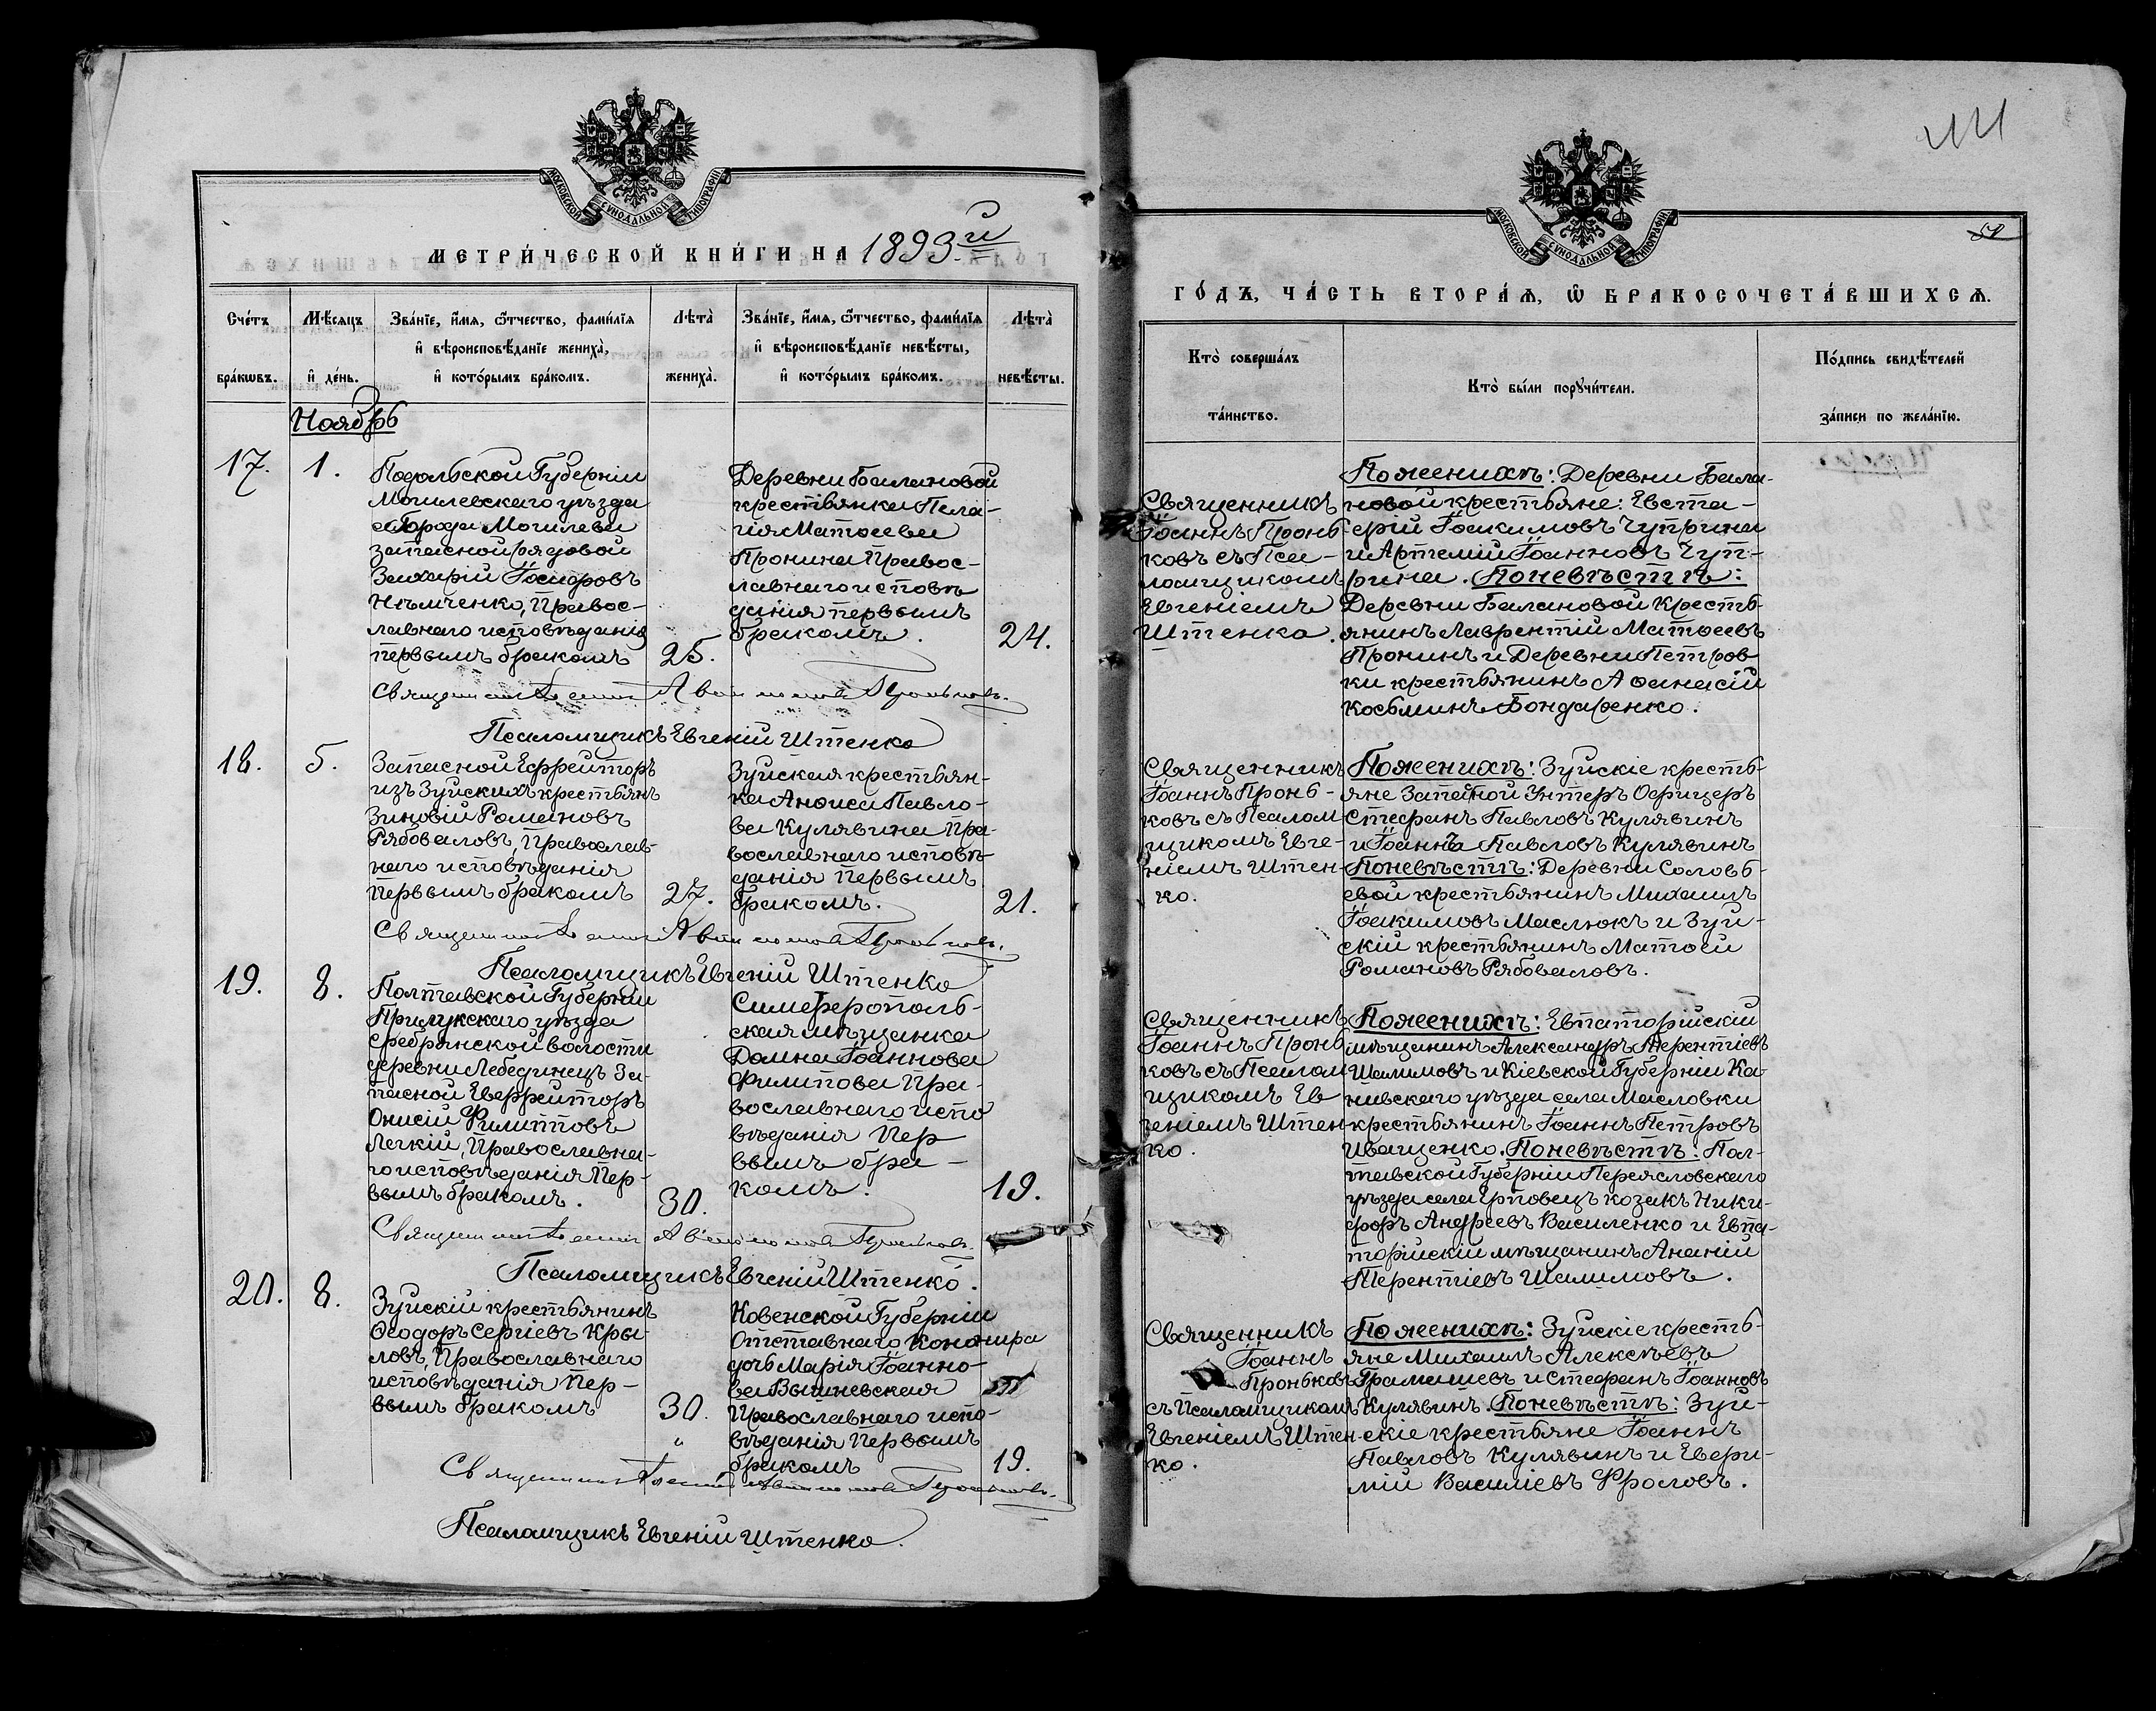 МОСКОВСКОЙ СУНОДАЛЬНОЙ ТИПОГРАФІИ
МЕТРИ́ЧЕСКОЙ КНИ́ГИ НА 1893.й
Сче́тъ
бра́кωвъ.
Мѣ́сяцъ
и҆ де́нь.
Зва́нїе, и҆́мя, ѻ҆́тчество, фами́лїя
и҆ вѣроисповѣ́данїе жениха̀,
и҆ кото́рымъ бра́комъ.
Лѣ́та̀
жениха̀.
Зва́нїе, и҆́мя, ѻ҆́тчество, фами́лїя
и҆ вѣроисповѣ́данїе невѣ́сты,
и҆ кото́рымъ бра́комъ.
Лѣ́та̀
невѣ́сты.
Ноябрь
17.
1.
Подольской Губерніи
Могилевскаго уѣзда
Города Могилева
запасной рядовой
Захарій Ѳеодоровъ
Нѣмченко, Правос-
лавнаго исповѣданія
первымъ бракомъ
25.
Деревни Балановой
крестьянка Пела-
гія Матѳеева
Пронина Правос-
лавнаго исповѣ
данія первымъ
бракомъ.
24.
Священникъ Іоаннъ Автономовъ Проньковъ.
Псаломщикъ Евгеній Штенко
18.
5.
Запасной Ефрейторъ
изъ Зуйскихъ крестьянъ
Зиновій Романовъ
Рябоваловъ, Православ-
наго исповѣданія
Первымъ бракомъ
27.
Зуйская крестьян-
ка Анѳиса Павло-
ва Кулявина Пра-
вославнаго исповѣ-
данія Первымъ
бракомъ.
21.
Священникъ Іоаннъ Автономовъ Проньковъ.
Псаломщикъ Евгеній Штенко
19.
8.
Полтавской Губерніи
Прилукскаго уѣзда
Сребрянской волости
деревни Лебединецъ За-
пасной Ефрейторъ
Онисій Филиповъ
Легкій, Православна-
го исповѣданія Пер-
вымъ бракомъ.
30.
Симферополь-
ская мѣщанка
Домна Іоаннова
Филипова Пра-
вославнаго испо
вѣданія Пер
вымъ бра-
комъ.
19.
Священникъ Іоаннъ Автономовъ Проньковъ.
Псаломщикъ Евгеній Штенко.
20.
8.
Зуйскій крестьянинъ
Ѳеодоръ Сергіевъ Кры-
ловъ, Православнаго
исповѣданія Пер-
вымъ бракомъ
30.
Ковенской Губерніи
Отставнаго Канонира
дочь Марія Іоанно-
ва Вышневская
Православнаго испо-
вѣданія Первымъ
бракомъ
19.
Священникъ Іоаннъ Автономовъ Проньковъ.
Псаломщикъ Евгеній Штенко.
МОСКОВСКОЙ СУНОДАЛЬНОЙ ТИПОГРАФІИ
ГО́ДЪ, ЧА́СТЬ ВТОРА́Я, Ѽ БРАКОСОЧЕТА́ВШИХСЯ.
Кто̀ соверша́лъ
та́инство.
Кто̀ бы́ли порꙋчи́тели.
По́дпись свидѣ́телей
за́писи по жела́нїю.
Священникъ
Іоаннъ Пронь-
ковъ съ Пса-
ломщикомъ
Евгеніемъ
Штенко.
По женихѣ: Деревни Бала-
новой крестьяне: Евста-
фій Іоакимовъ Чуприна
и Артемій Іоанновъ Чуп-
рина. По невѣстѣ:
Деревни Балановой Кресть-
янинъ Лаврентій Матѳеевъ
Пронинъ и Деревни Петров
ки крестьянинъ Аѳанасій
Косьминъ Бондаренко.
Священникъ
Іоаннъ Пронь-
ковъ съ Псалом
щикомъ Евге-
ніемъ Штен-
ко.
По женихѣ: Зуйскіе кресть-
яне Запасной Унтеръ Офицеръ
Стефанъ Павловъ Кулявинъ
и Іоаннъ Павловъ Кулявинъ
По невѣстѣ: Деревни Соловь-
евой крестьянинъ Михаилъ
Іоакимовъ Маслюкъ и Зуй-
скій крестьянинъ Матѳей
Романовъ Рябоваловъ.
Священникъ
Іоаннъ Пронь
ковъ съ Псалом
щикомъ Ев
геніемъ Штен
ко.
По женихѣ: Евпаторійскій
мѣщанинъ Александръ Терентіевъ
Шалимовъ и Кіевской Губерніи Ка-
нивскаго уѣзда села Масловки
крестьянинъ Іоаннъ Петровъ
Иващенко. По невѣстѣ: Пол-
тавской Губерніи Переясловскаго
уѣзда села козакъ Ники-
форъ Андреевъ Василенко и Евпа-
торійскій мѣщанинъ Ананій
Терентіевъ Шалимовъ.
Священникъ
Іоаннъ
Проньковъ
съ Псаломщикомъ
Евгеніемъ Штен-
ко.
По женихѣ: Зуйскіе кресть-
яне Михаилъ Алексѣевъ
и Стефанъ Іоанновъ
Кулявинъ. По невѣстѣ: Зуй-
скіе крестьяне Іоаннъ
Павловъ Кулявинъ и Евфи-
мій Василіевъ Фроловъ.